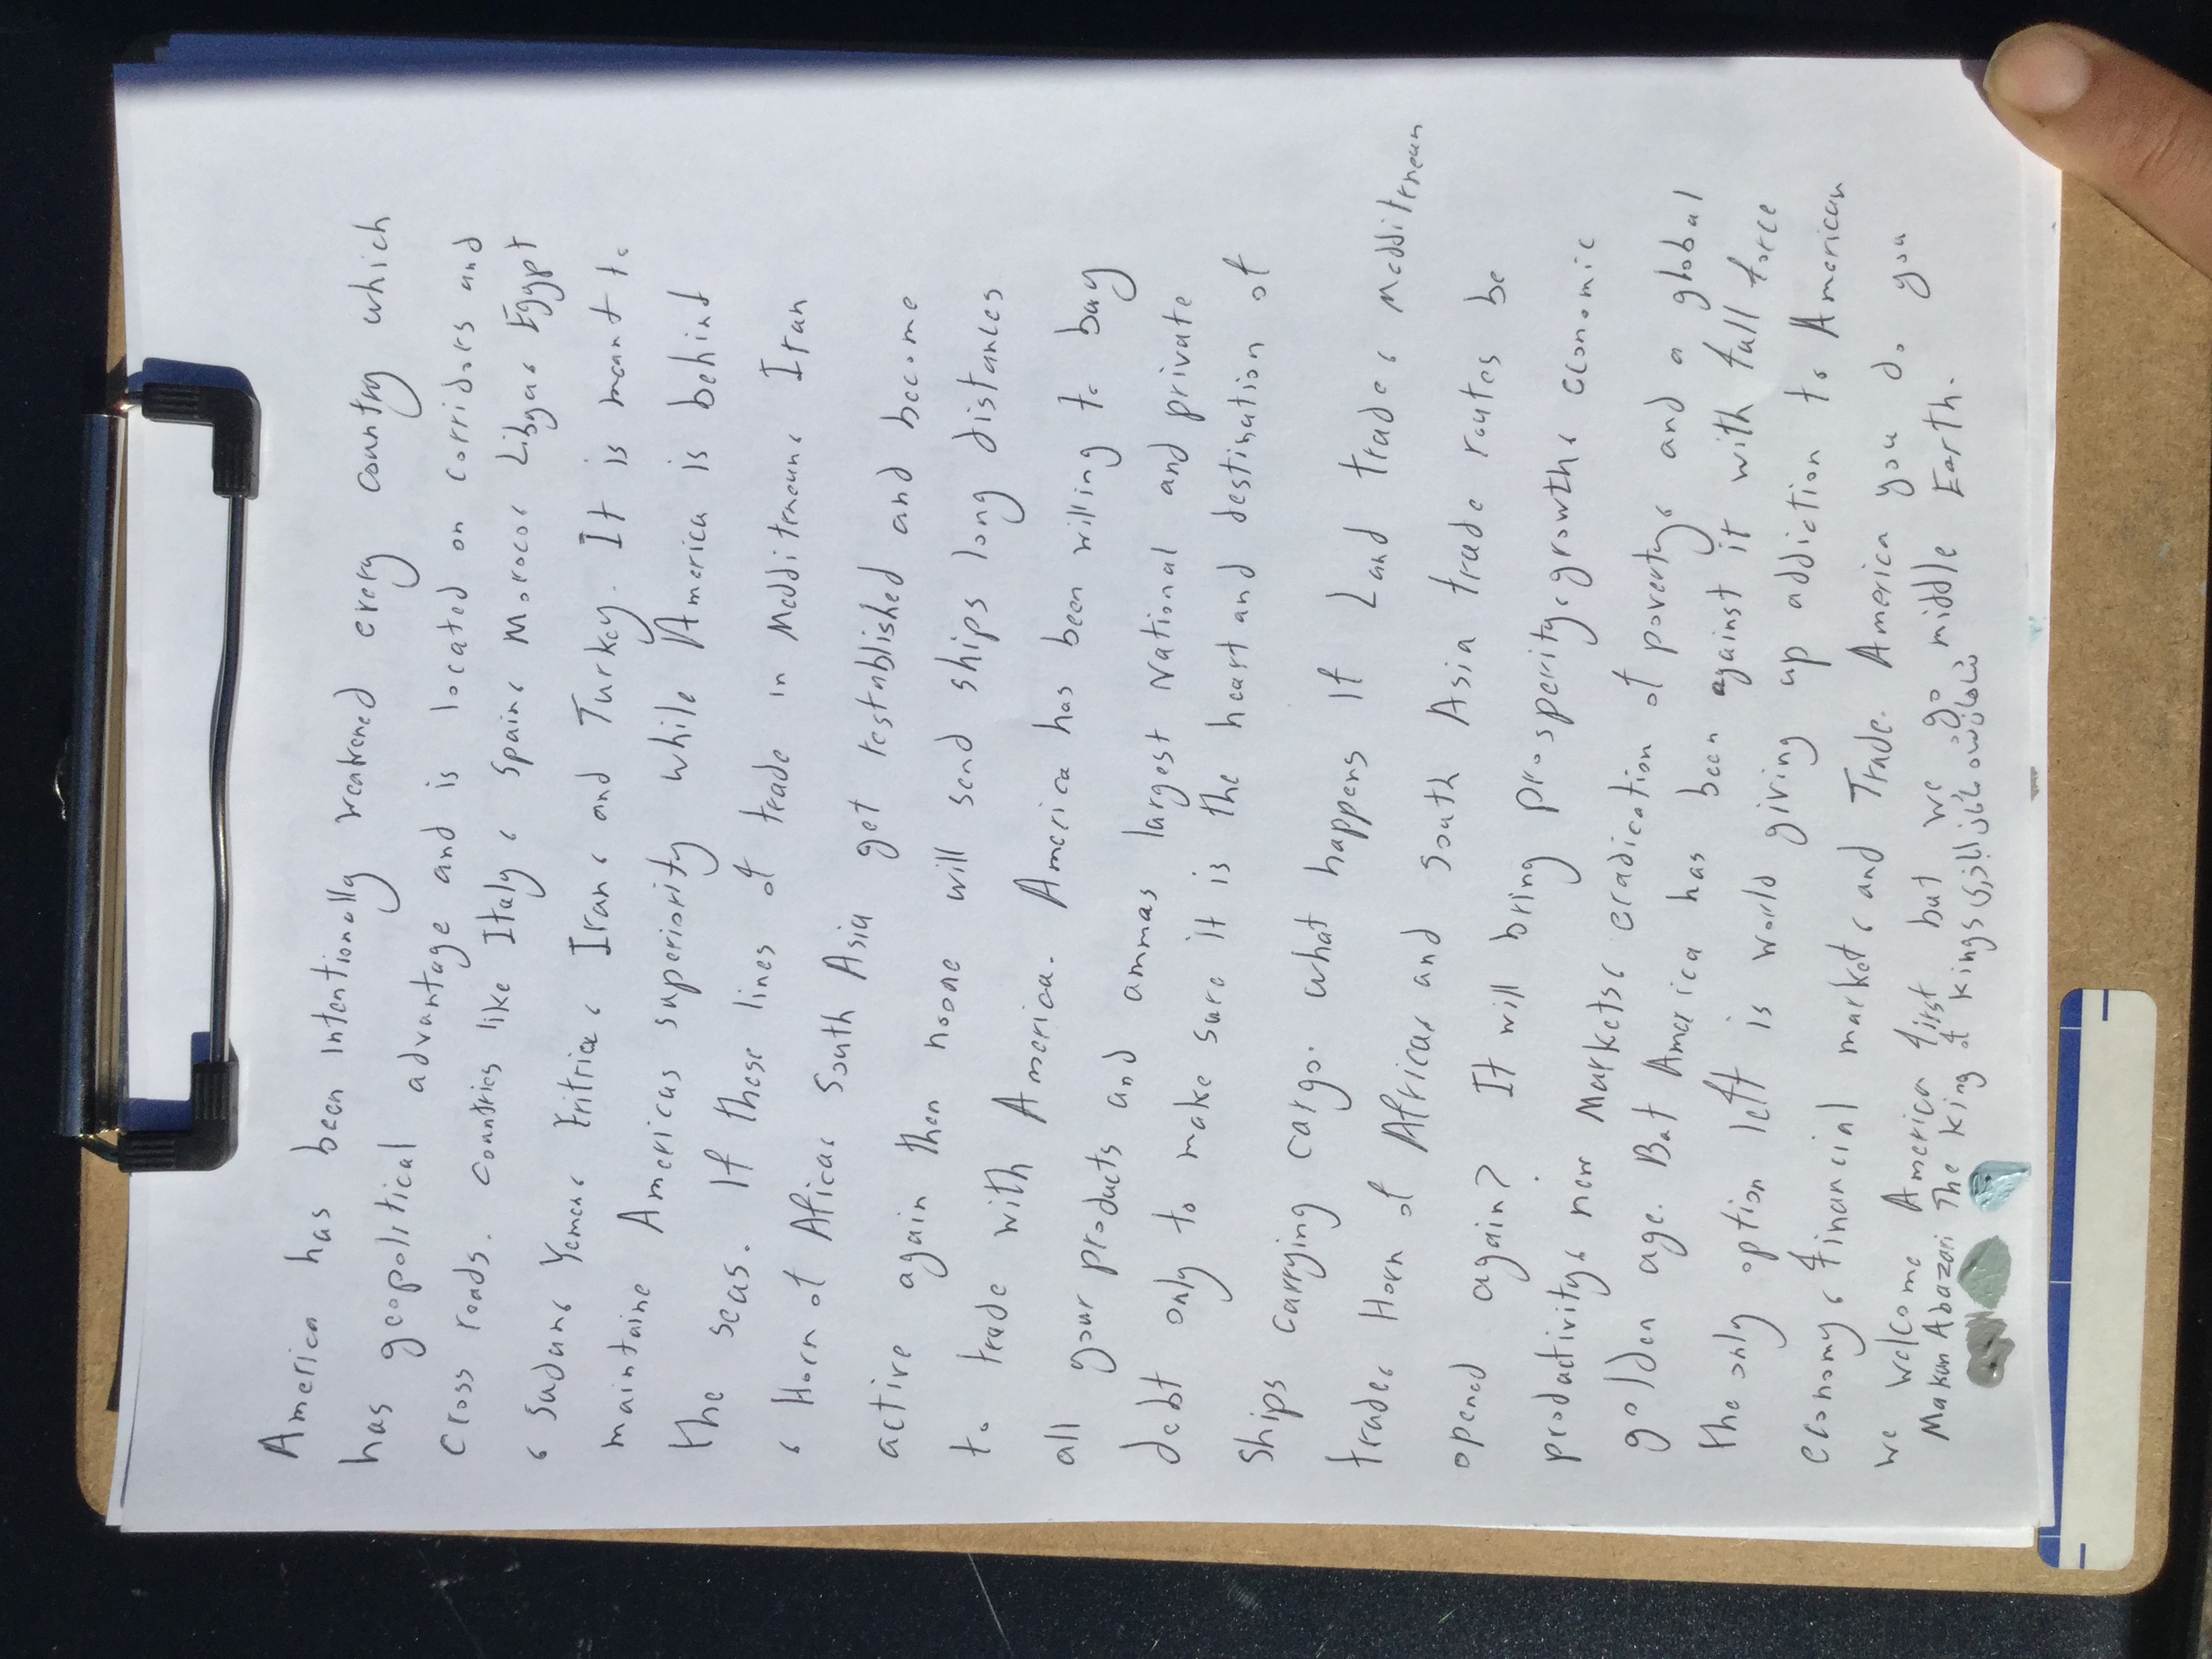 America has been intentionally weakened every country which
has geopolitical advantage and is located on corridors and
cross roads. countries like Italy، Spain، Moroco، Libya، Egypt
، Sudan، Yemen، Eritrica، Iran، and Turkey. It is meant to
maintaine Americas superiority while America is behind
the seas. If these lines of trade in Medditrneun، Iran
، Horn of Africa، South Asia get restablished and become
active again then noone will send ships long distances
to trade with America. America has been willing to buy
all your products and ammas largest National and private
debt only to make sure it is the heart and destination of
ships carrying cargo. what happens if Land trade، Medditrnean
trade، Horn of Africa، and South Asia trade routes be
opened again? It will bring prosperity، growth، economic
productivity، new Markets، eradication of poverty، and a global
golden age. But America has been against it with full force
the only option left is world giving up addiction to American
economy، financial market، and Trade. America you do you
we welcome America first but we go middle Earth.
Makan Abazari The king of kings